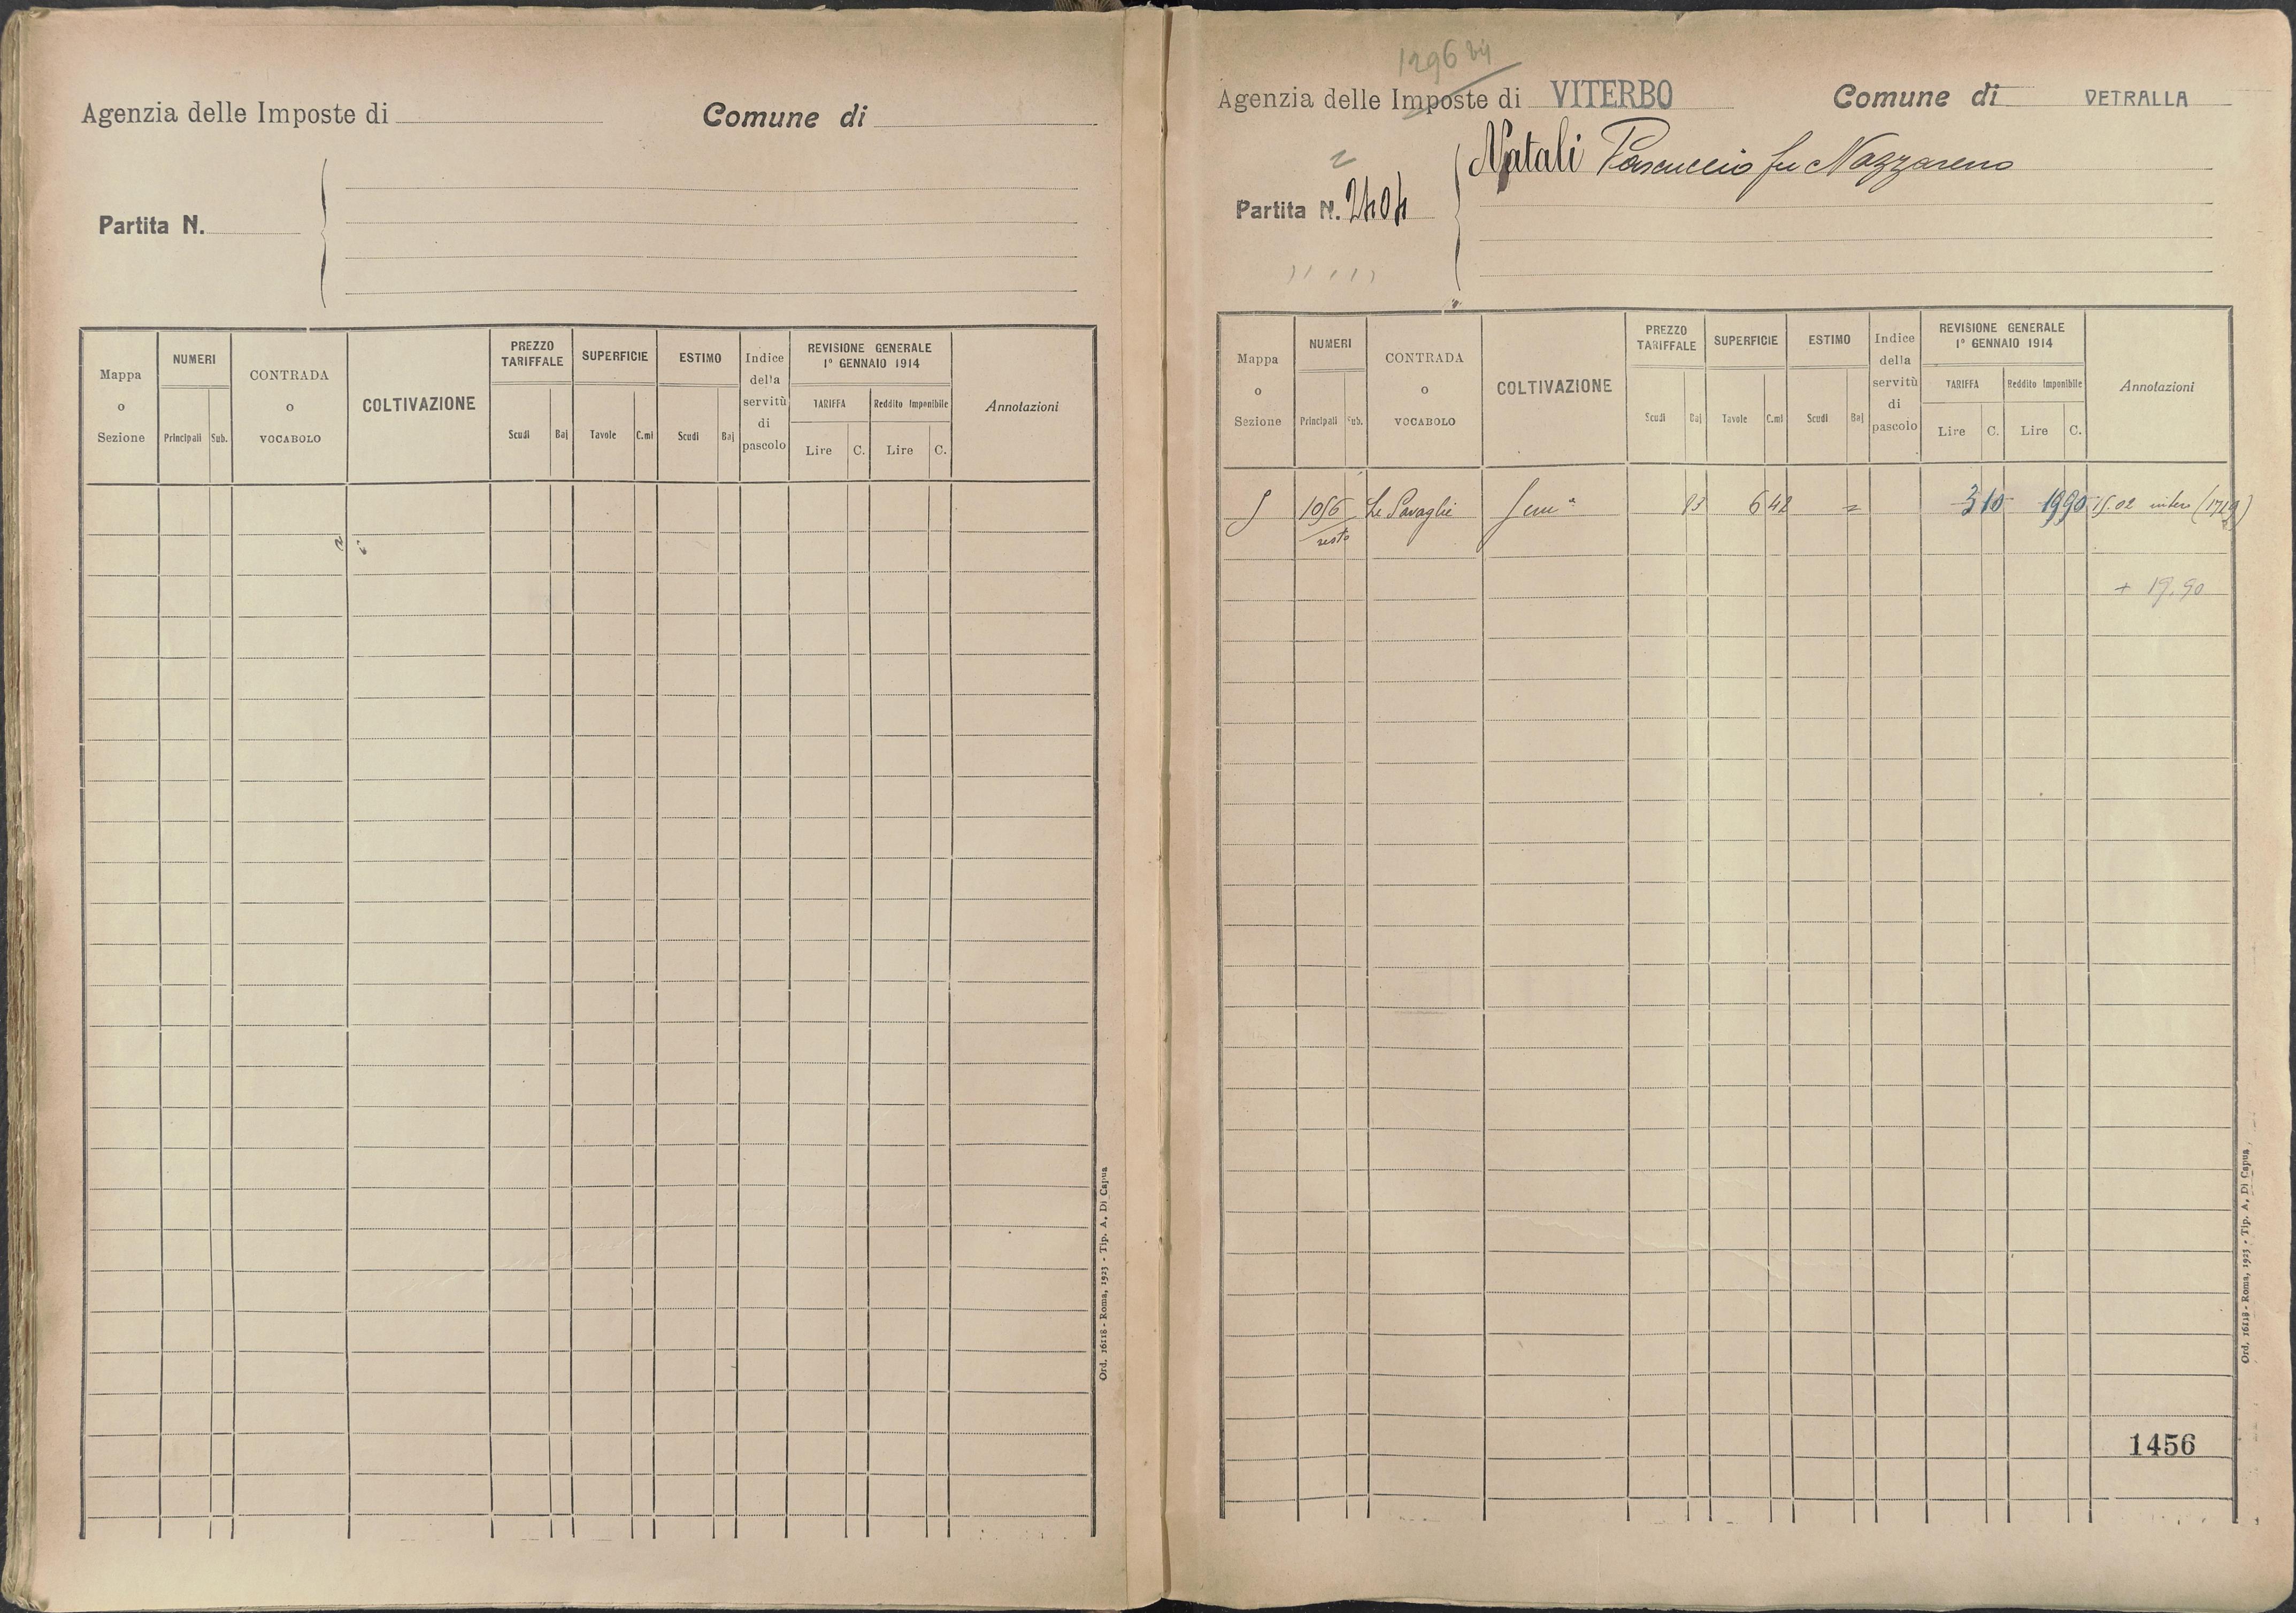 Agenzia delle Imposte di
Comune di
Partita N.
Mappa o Sezione
NUMERI
Principali Sub.
CONTRADA o VOCABOLO
COLTIVAZIONE
PREZZO TARIFFALE
Scudi Baj
SUPERFICIE
Tavole C.mi
ESTIMO
Scudi Baj
Indice della servitù di pascolo
REVISIONE GENERALE
1º GENNAIO 1914
TARIFFA
Lire C.
Reddito Imponibile
Lire C.
Annotazioni
Ord. 16118 - Roma, 1923 - Tip. A. Di Capua
1296
Agenzia delle Imposte di VITERBO
Comune di VETRALLA
Natali Pascuccio fu Nazzareno
Partita N. 2404
Mappa o Sezione
NUMERI
Principali Sub.
CONTRADA o VOCABOLO
COLTIVAZIONE
PREZZO TARIFFALE
Scudi Baj
SUPERFICIE
Tavole C.mi
ESTIMO
Scudi Baj
Indice della servitù di pascolo
REVISIONE GENERALE
1º GENNAIO 1914
TARIFFA
Lire C.
Reddito Imponibile
Lire C.
Annotazioni
1056 Le 83 6 42 = 3 10 19 90 15.02
resto
+ 19.90
1456
Ord. 16118 - Roma, 1923 - Tip. A. Di Capua